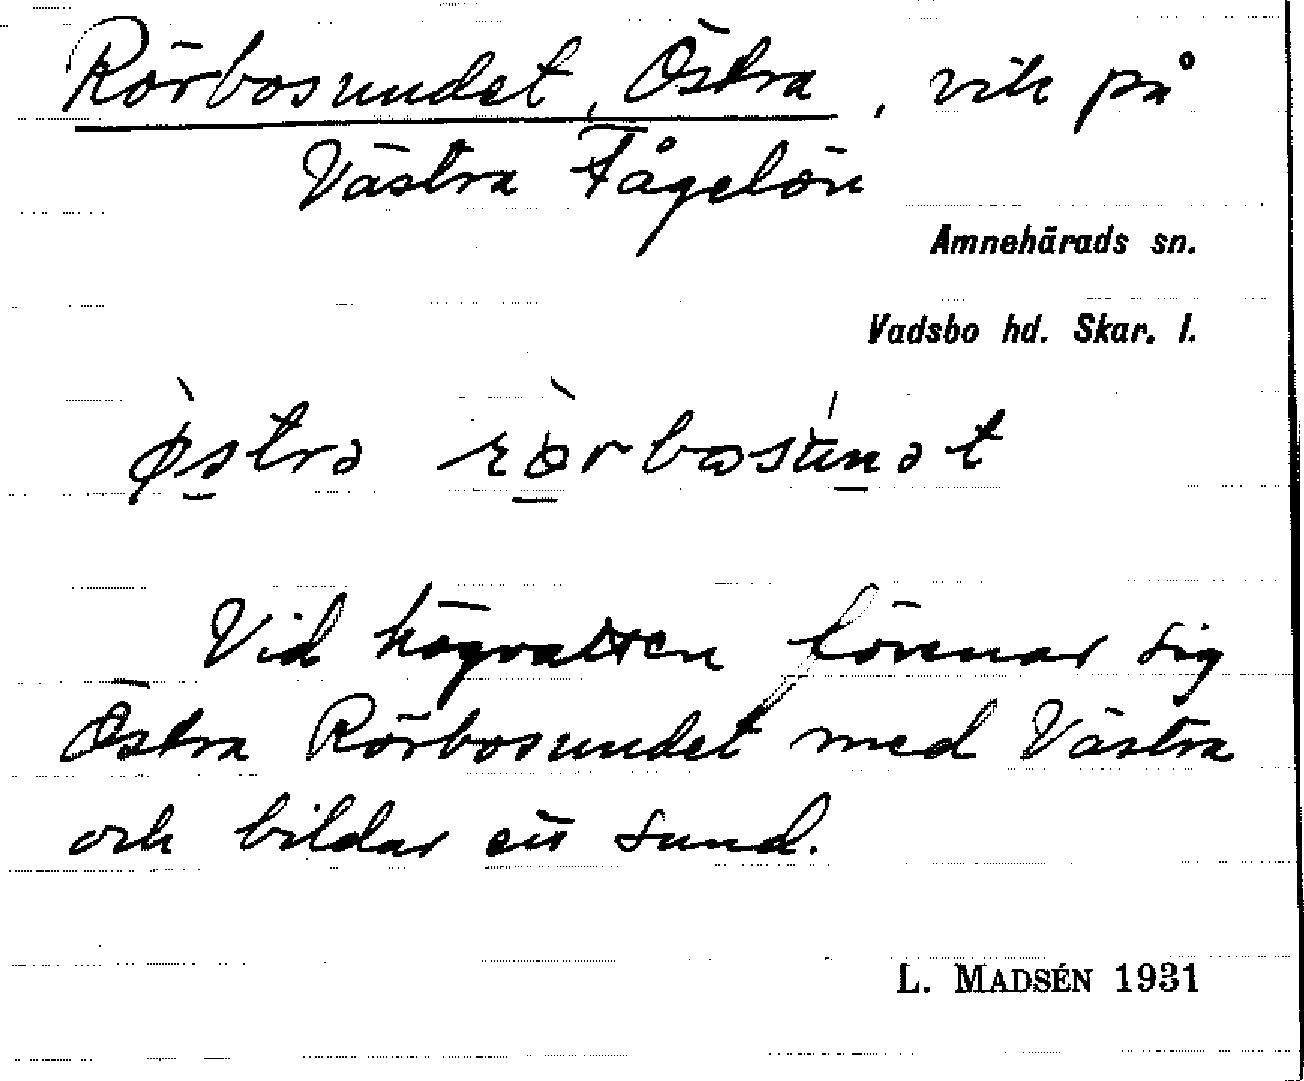 Rörbosundet, Östra, vik på
Västra Fågelön
Amnehärads sn.
Vadsbo hd. Skar. l.
Vid högvatten förenar sig
Östra Rörbosundet med Västra
och bildar ett sund.
L. MADSÉN 1931